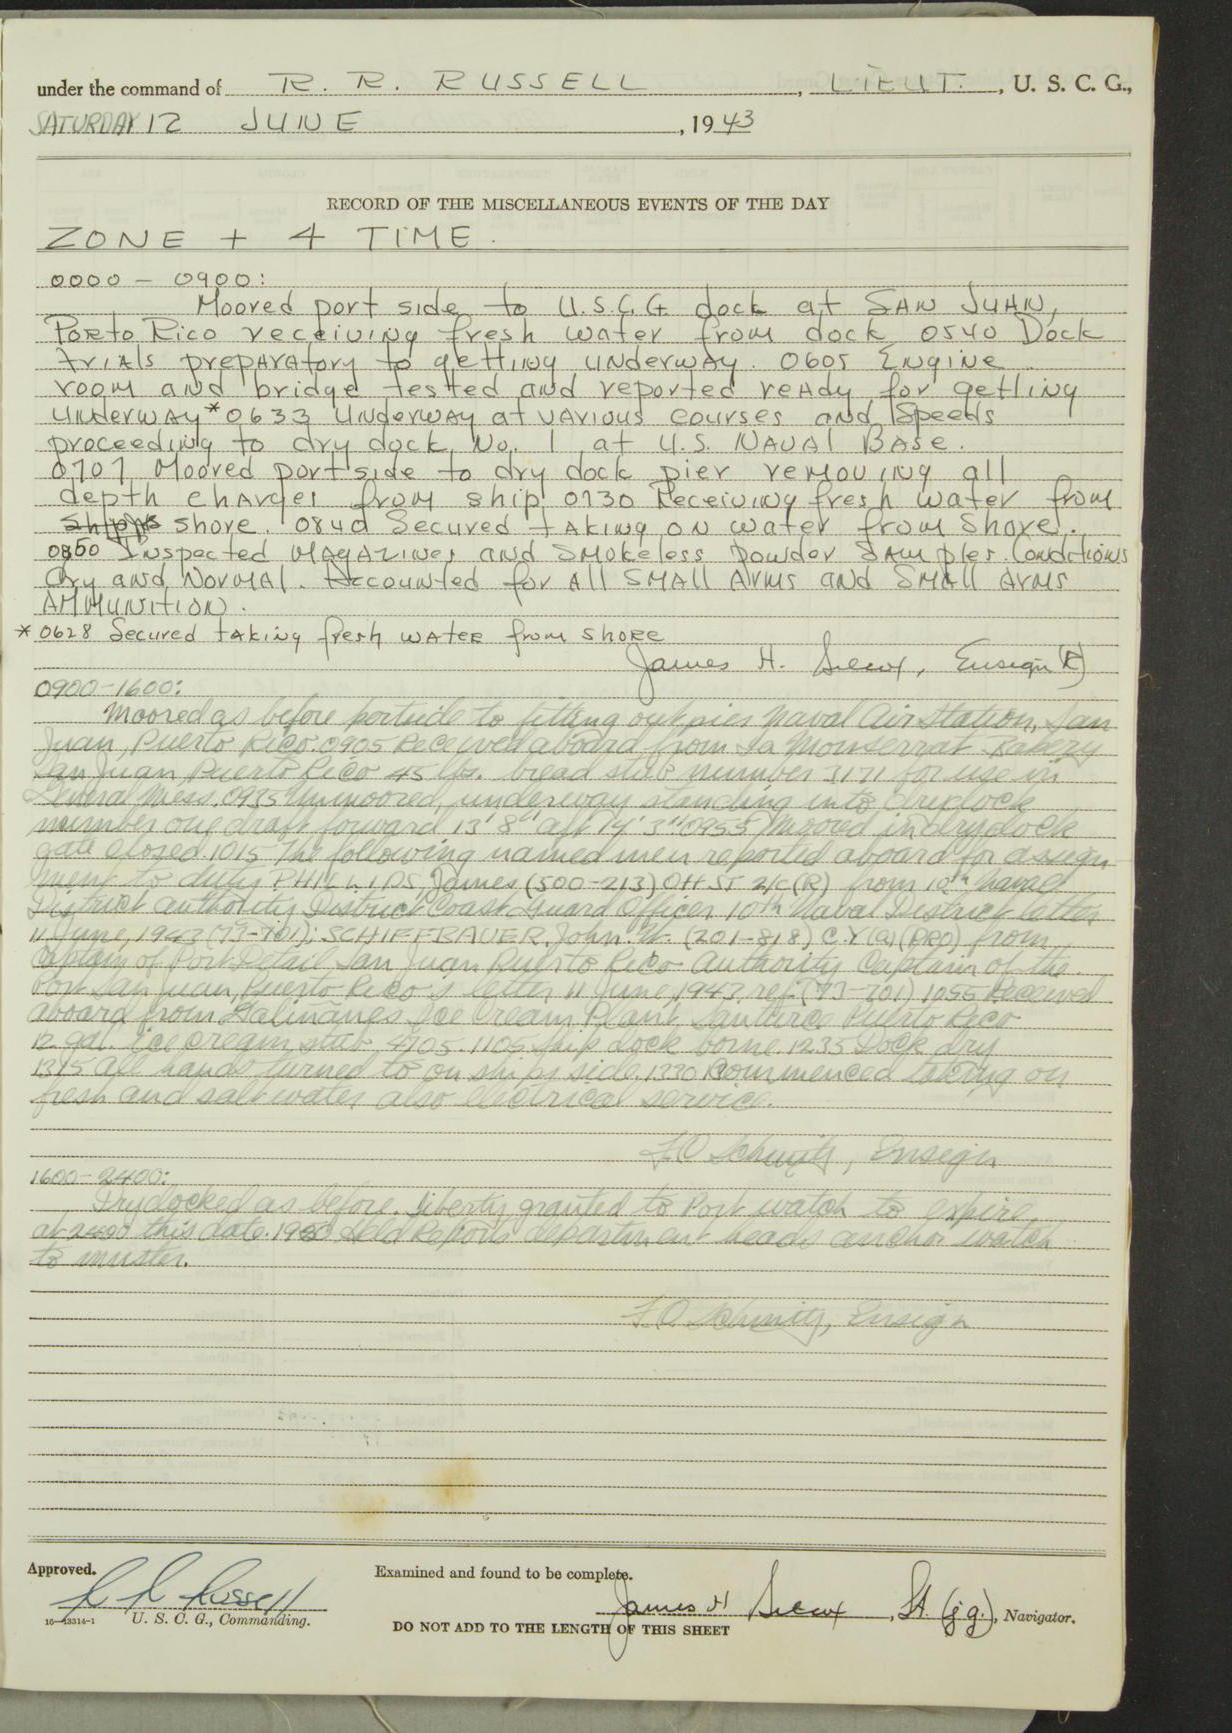 under the command of R. R. RUSSELL, LIEUT., U. S. C. G.,
SATURDAY 12 JUNE, 1943
RECORD OF THE MISCELLANEOUS EVENTS OF THE DAY
ZONE + 4 TIME.
0000 - 0900:
Moored port side to U.S.C.G dock at SAN JUAN,
Porto Rico receiving fresh water from dock 0540 Dock
trials preparatory to getting underway. 0605 Engine
room and bridge tested and reported ready for getting
underway* 0633 Underway at various courses and speeds
proceeding to dry dock No. 1 at U.S. Naval Base.
0707 Moored port side to dry dock pier removing all
depth charges from ship 0730 Receiving fresh water from
shore. 0840 Secured taking on water from shore.
0850 Inspected magazines and smokeless powder samples. Conditions
dry and normal. Accounted for all small arms and small arms
ammunition.
* 0628 Secured taking fresh water from shore
James H. Ensign (R)
0900-1600:
Moored as before portside to fitting out pier Naval Air Station, San
Juan, Puerto Rico. 0905 Received aboard from La Monserrat Bakery
San Juan Puerto Rico 45 lbs. bread stub number 3171 for use in
General Mess. 0935 Unmoored, underway standing into drydock
number one draft forward 13' 8" aft 14' 3" 0955 Moored in drydock
gate closed. 1015 The following named men reported aboard for assign-
ment to duty PHILLIPS, James (500-213) OHST 2/c (R) from 10th Naval
District authority District Coast Guard Officer 10th Naval District letter
11 June, 1943 (73-701); SCHIFFBAUER, John. W. (201-818) C.Y (a) (PRO) from
Captain of Port Detail San Juan Puerto Rico Authority Captain of the
Port San Juan, Puerto Rico's letter 11 June, 1943, ref: (73-701) 1055 Received
aboard from Ice Cream Plant, Santurce Puerto Rico
12 gal. ice cream, stub 4705. 1105 Ship dock borne. 1235 Dock dry
1315 All hands turned to on ships side. 1330 Commenced taking on
fresh and salt water also electrical service.
F.O. Schmitz, Ensign
1600-2400:
Drydocked as before. Liberty granted to Port watch to expire
at 2400 this date. Held Reports department heads anchor watch
to muster.
F.O. Schmitz, Ensign
Approved. Examined and found to be complete.
R R Russell James H , Lt. (jg.), Navigator.
16—13314-1 U. S. C. G., Commanding.
DO NOT ADD TO THE LENGTH OF THIS SHEET